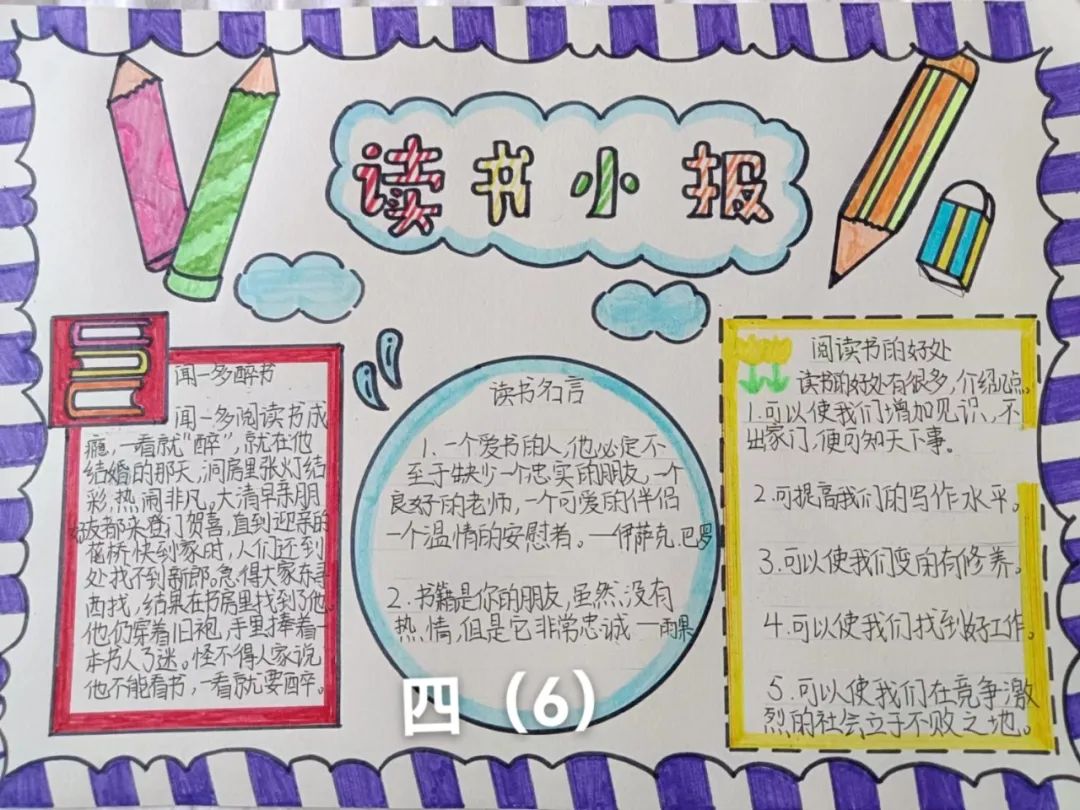 读书小报
闻一多醉书
闻一多阅读书成
瘾，一看就"醉"，就在他
结婚的那天，洞房里张灯结
彩，热闹非凡。大清早亲朋
好友都来登门贺喜，直到迎亲的
花桥快到家时，人们还到
处找不到新郎。急得大家东寻
西找，结果在书房里找到了他。
他仍穿着旧袍，手里捧着一
本书入了迷。怪不得人家说
他不能看书，一看就要醉。
读书名言
1.一个爱书的人，他必定不
至于缺少一个忠实的朋友，一个
良好的老师，一个可爱的伴侣
一个温情的安慰者。—伊萨克.巴罗
2.书籍是你的朋友，虽然，没有
热，情，但是它非常忠诚—雨果
阅读书的好处
读书的好处有很多，介绍几点。
1.可以使我们增加见识、不
出家门，便可知天下事。
2.可提高我们的写作水平。
3.可以使我们变的有修养。
4.可以使我们找到好工作。
5.可以使我们在竞争激
烈的社会立于不败之地。
四（6）